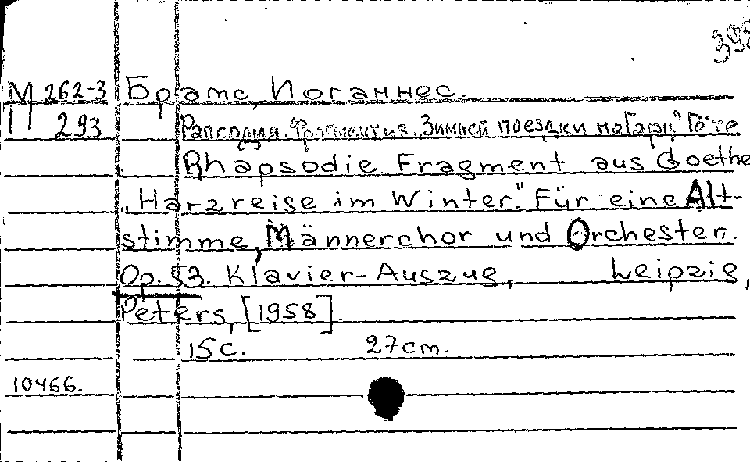 398
М 262-3 Брамс, Иоганнес.
П 293 Рапсодия. Фрагмент из „Зимней поездки на Гарц" Гёте
Rhapsodie Fragment aus Goethe
„Harzreise im Winter." Für eine Alt-
stimme, Männerchor und Orchester.
Op. 53. Klavier-Auszug, Leipzig,
Peters, [1958]
15с. 27cm.
10466.